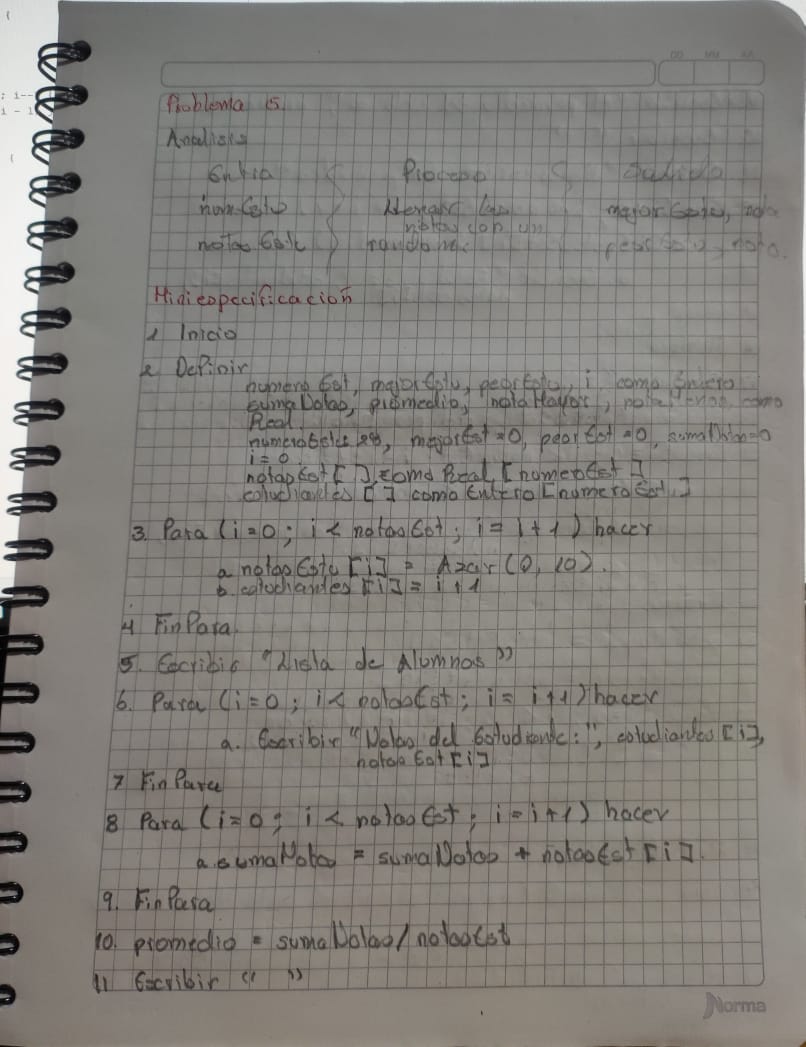 Problema 5.
Analisis
Entra Proceso Salida
numEstu Llenar las mejor Estu, nota
notas Estu notas con un peor Estu, nota.
random.
Miniespecificacion
1 Inicio
2 Definir
numero Est, mejorEstu, peorEstu, i como Entero
sumaNotas, promedio, notaMayor, notaMenor como
Real
numeroEst= 28, mejorEst=0, peorEst=0, sumaNotas=0
i=0
notasEst[], como Real [numeroEst]
estudiantes [] como Entero [numeroEst]
3. Para (i=0; i < notasEst; i= i+1) hacer
a notasEstu [i] = Azar (0, 10).
b estudiantes [i] = i+1
4 FinPara.
5. Escribir "Lista de Alumnos"
6. Para (i=0; i< notasEst; i= i+1) hacer
a. Escribir "Notas del Estudiante:", estudiantes [i],
notasEst [i]
7 FinPara
8 Para (i=0; i < notasEst; i=i+1) hacer
a. sumaNotas = sumaNotas + notasEst [i].
9. FinPara
10. promedio = sumaNotas/notasEst
11 Escribir " "
Norma